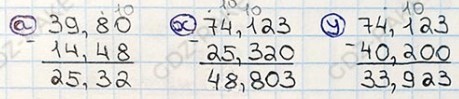 а) 39,80 х) 74,123 у) 74,123
- 14,48 - 25,320 - 40,200
25,32 48,803 33,923